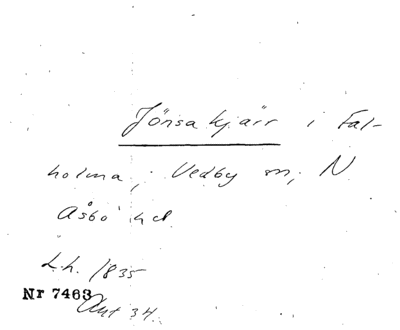 Jönsakjärr i Fal-
holma, Vedby sn, N
Åsbo hd
L.h. 1835
Nr 7463
Akt 34.